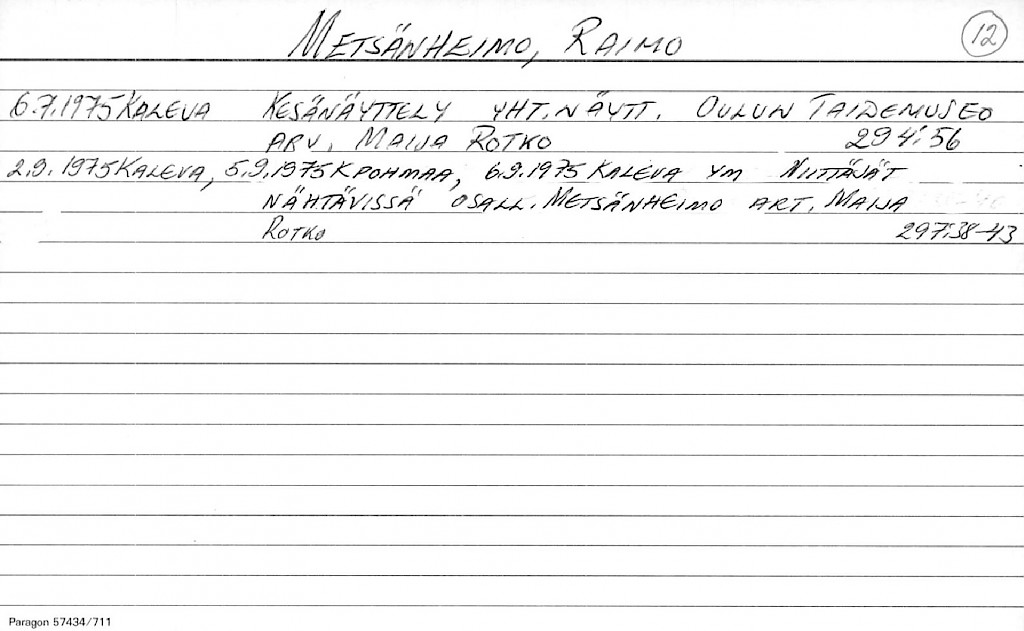 METSÄNHEIMO, RAIMO 12
6.7.1975 KALEVA KESÄNÄYTTELY YHT.NÄYTT. OULUN TAIDEMUSEO
ARV. MAIJA ROTKO 294:56
2.9.1975 KALEVA, 5.9.1975 KPOHMAA, 6.9.1975 KALEVA YM NIITTÄJÄT
NÄHTÄVISSÄ OSALL. METSÄNHEIMO ART. MAIJA
ROTKO 297:38-43
Paragon 57434/711